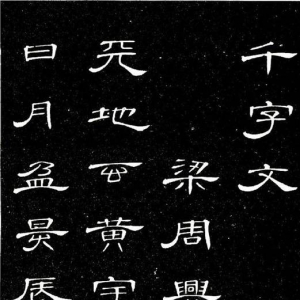 千字文
梁周興
天地玄黄宇
日月盈昃辰